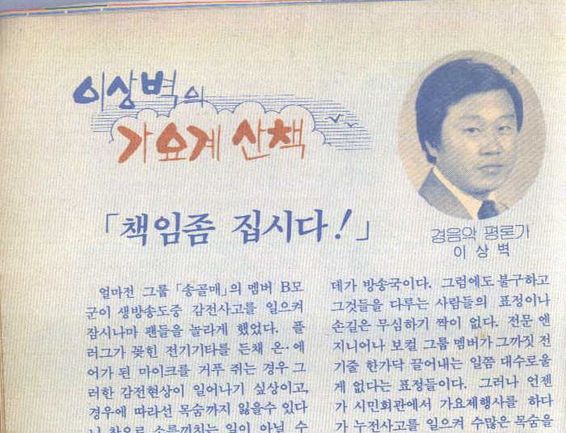 이상벽의
가요계 산책
「책임좀 집시다!」
경음악 평론가
이 상 벽
얼마전 그룹 「송골매」의 멤버 B모
군이 생방송도중 감전사고를 일으켜
잠시나마 팬들을 놀라게 했었다. 플
러그가 꽂힌 전기기타를 든채 온·에
어가 된 마이크를 거푸 쥐는 경우 그
러한 감전현상이 일어나기 싶상이고,
경우에 따라선 목숨까지 잃을수 있다
니 참으로 소름끼치는 일이 아닐 수
데가 방송국이다. 그럼에도 불구하고
그것들을 다루는 사람들의 표정이나
손길은 무심하기 짝이 없다. 전문 엔
지니어나 보컬 그룹 멤버가 그까짓 전
기줄 한가닥 끌어내는 일쯤 대수로울
게 없다는 표정들이다. 그러나 언젠
가 시민회관에서 가요제행사를 하다
가 누전사고를 일으켜 수많은 목숨을